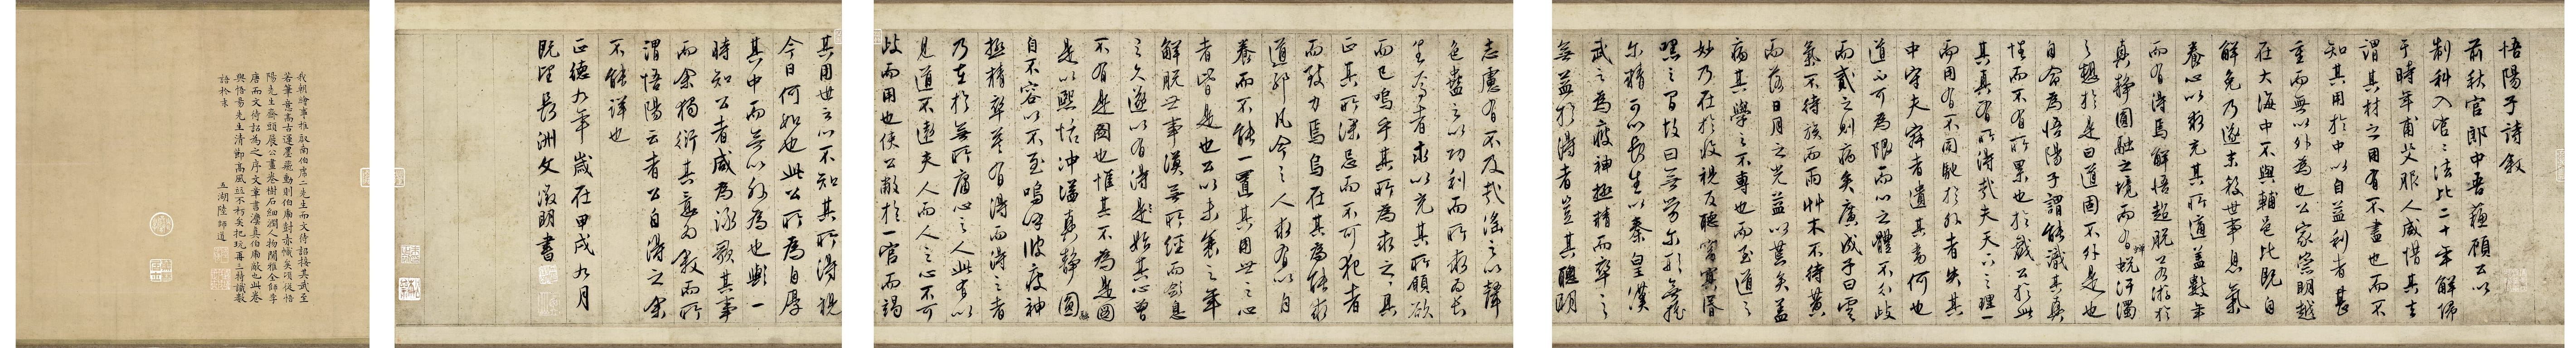 悟陽子詩敘
前秋官郎中吾蘇顧公以
制科入官三法比二十年解歸
于時年甫艾服人咸惜其去
謂其材之用有不盡也而不
知其用於中以自益利者甚
重而無以外為也公家崇明越
在大海中不與輔邑比既自
解免乃遂末殺世事息氣
養心以求充其所道蓋數年
而有得焉解悟超脫若游於
真靜圓融之境而有蟬蛻汙濁
之趣於是曰道固不外是也
自命為悟陽子謂能識其真
性而不有所累也於戲公於此
其真有所得哉夫天下之理一
而用有不同馳於外者失其
中守夫寂者遺其書何也
道不可為限而心之體不分歧
而貳之則病矣廣成子曰雲
氣不待族而雨草木不待黃
而落日月之光益以荒矣蓋
病其學之不專也而至道之
妙乃在於收視反聽窅窅冥昏
默之間故曰無勞爾形無搖
爾精可以長生以秦皇漢
武之為疲神極精而卒之
無益於得者豈其聰明
志慮有不及哉淫之以聲
色蠱之以功利而所求而長
生焉者求以充其所願欲
而已嗚乎其所為求之其
正其所深忌而不可犯者
而致力焉烏在其為能求
道耶凡今之人求有以自
養而不能一置其用世之心
者皆是也公以未衰之年
解脫世事漠無所經而斂息
之久遂以有得是始其心曾
不有是圖也惟其不為是圖
是以熙恬沖溢真靜圓
自不容以不至嗚呼彼疲神
極精卒若有得而得之者
乃在於無所庸心之人此有以
見道不遠夫人而人之心不可
歧而用也使公敝於一官而竭
其用世之心不知其所得視
今日何如也此公所為自厚
其中而無以外為也歟一
時知公者咸為詠歌其事
而余獨衍其意為敘而所
謂悟陽云者公自得之余
不能詳也
正德九年歲在甲戌九月
既望長洲文徵明書
我朝繪事推取南伯虎二先生而文待詔接其武至
若筆意高古運墨飛動則伯虎對亦愧矣頃從悟
陽先生齋頭展公畫卷樹石細潤人物閒雅全師李
唐而文待詔為之序文章書灋真伯虎敵也此卷
與悟陽先生清節高風竝不朽矣把玩再三特識數
語於末
五湖陸師道